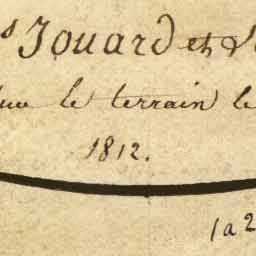 s Jouard et
le terrain le
1812.
1a2